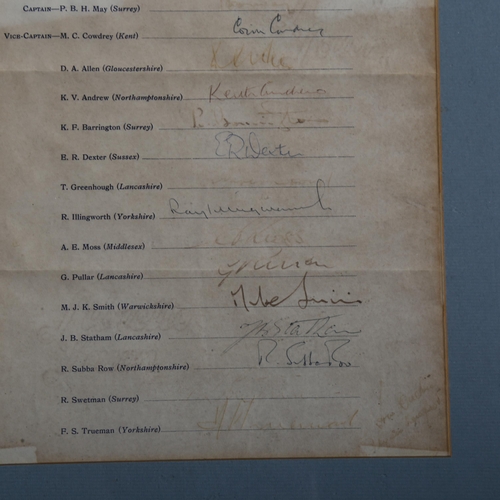 CAPTAIN—P. B. H. MAY (Surrey)
VICE-CAPTAIN—M. C. COWDREY (Kent) Colin Cowdrey
D. A. ALLEN (Gloucestershire)
K. V. ANDREW (Northamptonshire) Keith Andrew
K. F. BARRINGTON (Surrey)
E. R. DEXTER (Sussex) E R Dexter
T. GREENHOUGH (Lancashire)
R. ILLINGWORTH (Yorkshire) Ray Illingworth
A. E. MOSS (Middlesex)
G. PULLAR (Lancashire) G Pullar
M. J. K. SMITH (Warwickshire) Mike Smith
J. B. STATHAM (Lancashire) J B Statham
R. SUBBA ROW (Northamptonshire) R. Subba Row
R. SWETMAN (Surrey)
F. S. TRUEMAN (Yorkshire)